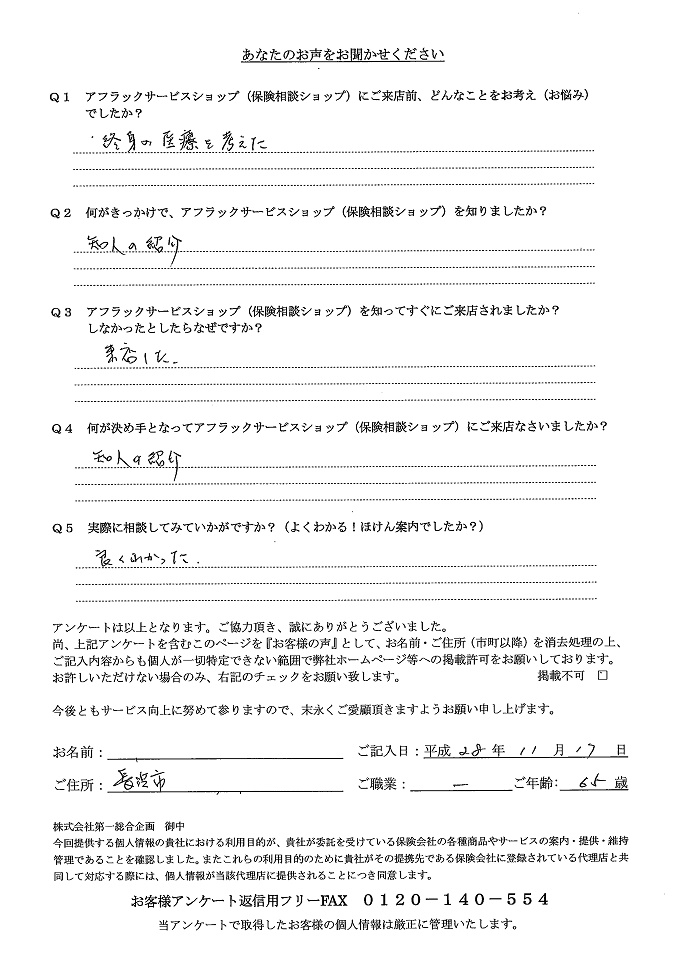 あなたのお声をお聞かせください
Q1 アフラックサービスショップ（保険相談ショップ）にご来店前、どんなことをお考え（お悩み）
でしたか？
・終身の医療を考えた
Q2 何がきっかけで、アフラックサービスショップ（保険相談ショップ）を知りましたか？
知人の紹介
Q3 アフラックサービスショップ（保険相談ショップ）を知ってすぐにご来店されましたか？
しなかったとしたらなぜですか？
来店した.
Q4 何が決め手となってアフラックサービスショップ（保険相談ショップ）にご来店なさいましたか？
知人の紹介
Q5 実際に相談してみていかがですか？（よくわかる！ほけん案内でしたか？）
良くわかった.
アンケートは以上となります。ご協力頂き、誠にありがとうございました。
尚、上記アンケートを含むこのページを『お客様の声』として、お名前・ご住所（市町以降）を消去処理の上、
ご記入内容からも個人が一切特定できない範囲で弊社ホームページ等への掲載許可をお願いしております。
お許しいただけない場合のみ、右記のチェックをお願い致します。 掲載不可 □
今後ともサービス向上に努めて参りますので、末永くご愛顧頂きますようお願い申し上げます。
お名前： ご記入日：平成 28 年 11 月 17 日
ご住所： 長浜市 ご職業： ー ご年齢： 65 歳
株式会社第一総合企画 御中
今回提供する個人情報の貴社における利用目的が、貴社が委託を受けている保険会社の各種商品やサービスの案内・提供・維持
管理であることを確認しました。またこれらの利用目的のために貴社がその提携先である保険会社に登録されている代理店と共
同して対応する際には、個人情報が当該代理店に提供されることにつき同意します。
お客様アンケート返信用フリーFAX 0120－140－554
当アンケートで取得したお客様の個人情報は厳正に管理いたします。